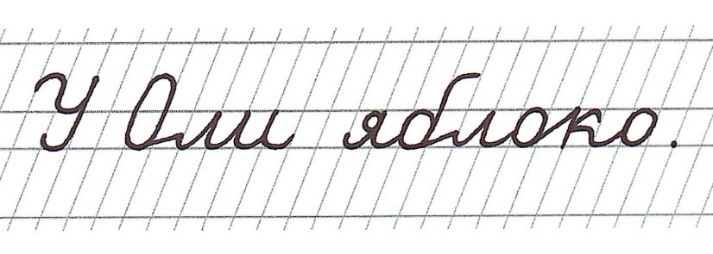 У Оли яблоко.